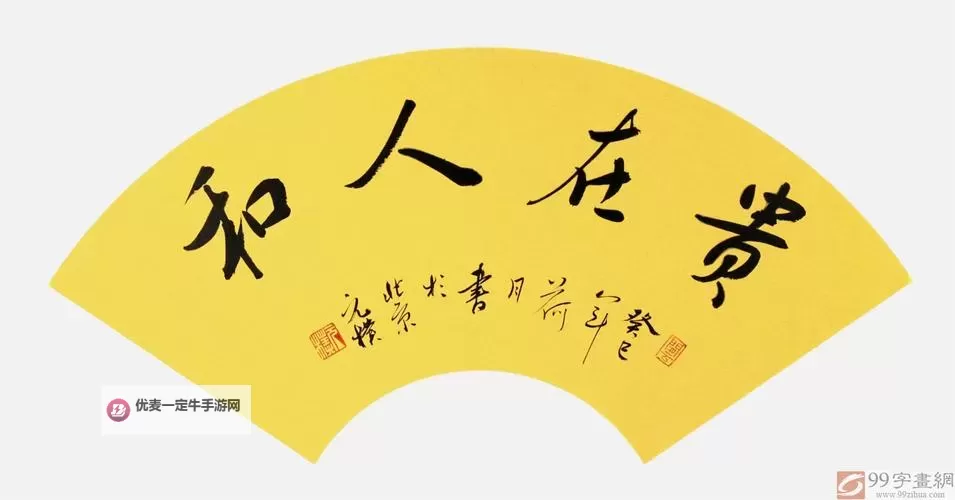 贵在人和
癸巳年荷月書於北京
元樸
优麦一定牛手游网
99字畫網
www.99zihua.com